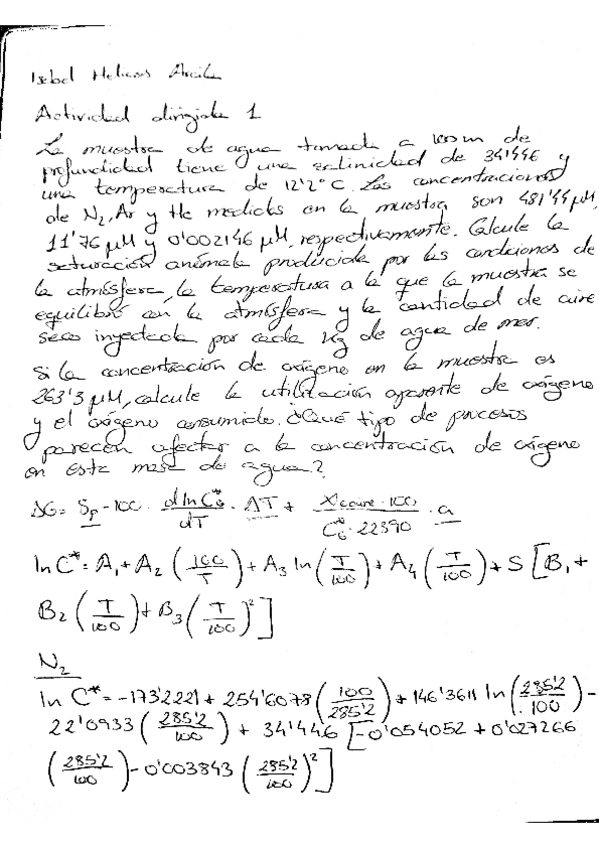 Isabel
Actividad dirigida 1
La muestra de agua tomada a 100m de
profundidad tiene una salinidad de 34'446 y
una temperatura de 12'2°C. Las concentraciones
de N2, Ar y He medidas en la muestra son 481'44 µM,
11'76 µM y 0'002146 µM, respectivamente. Calcule la
saturación anómala producida por las condiciones de
la atmósfera, la temperatura a la que la muestra se
equilibró con la atmósfera y la cantidad de aire
seco inyectada por cada kg de agua de mar.
Si la concentración de oxígeno en la muestra es
263'3 µM, calcule la utilización aparente de oxígeno
y el oxígeno consumido. ¿Qué tipo de procesos
parecen afectar a la concentración de oxígeno
en esta masa de agua?
ΔG = Sp - 100 · d ln C*G / dT · ΔT + X'i aire · 100 / C*G · 22390 · a
ln C* = A1 + A2 (100/T) + A3 ln (T/100) + A4 (T/100) + S [B1 +
B2 (T/100) + B3 (T/100)²]
N2
ln C* = -173'2221 + 254'6078 (100/285'2) + 146'3611 ln (285'2/100) -
22'0933 (285'2/100) + 34'446 [-0'054052 + 0'027266
(285'2/100) - 0'003843 (285'2/100)²]